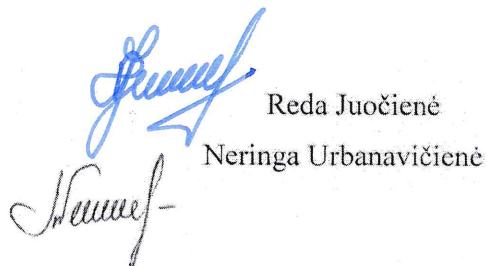 Reda Juočienė
Neringa Urbanavičienė